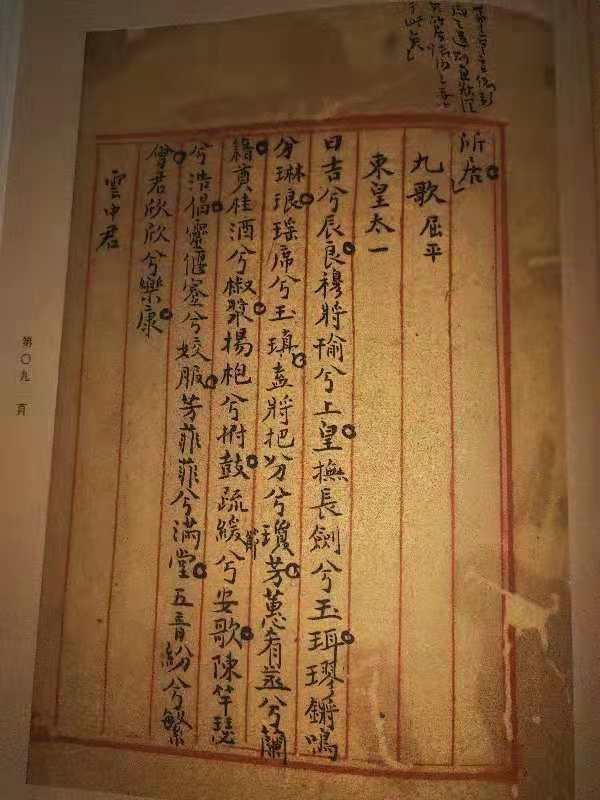 所居
九歌 屈平
東皇太一
日吉兮辰良穆將愉兮上皇撫長劍兮玉珥璆鏘鳴
兮琳琅瑶席兮玉瑱盍將把兮瓊芳蕙肴蒸兮蘭
藉奠桂酒兮椒漿揚枹兮拊鼓疏緩節兮安歌陳竽瑟
兮浩倡靈偃蹇兮姣服芳菲菲兮滿堂五音紛兮繁
會君欣欣兮樂康
雲中君
第〇九頁